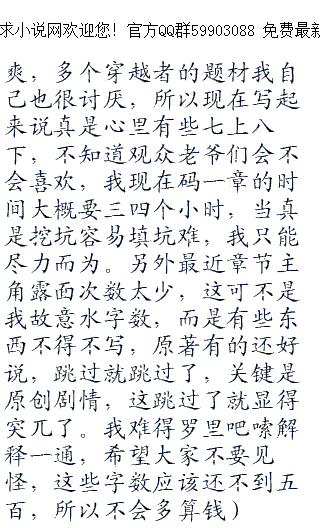 求小说网欢迎您！官方QQ群59903088 免费最新
爽，多个穿越者的题材我自
己也很讨厌，所以现在写起
来说真是心里有些七上八
下，不知道观众老爷们会不
会喜欢，我现在码一章的时
间大概要三四个小时，当真
是挖坑容易填坑难，我只能
尽力而为。另外最近章节主
角露面次数太少，这可不是
我故意水字数，而是有些东
西不得不写，原著有的还好
说，跳过就跳过了，关键是
原创剧情，这跳过了就显得
突兀了。我难得罗里吧嗦解
释一通，希望大家不要见
怪，这些字数应该还不到五
百，所以不会多算钱）